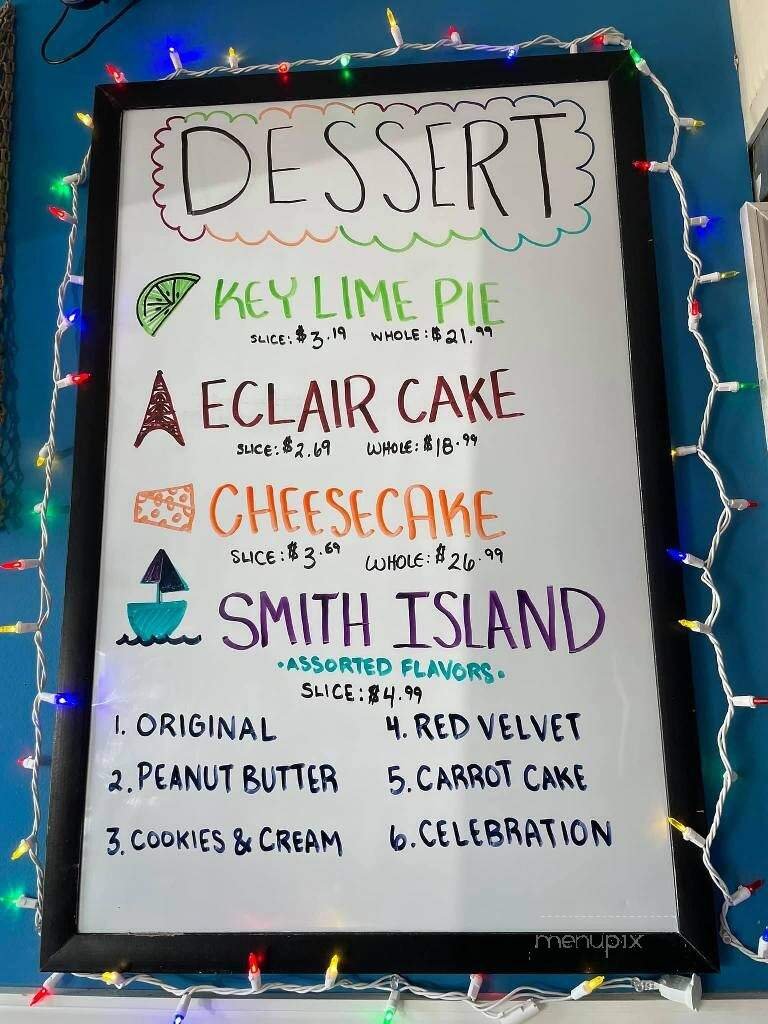 DESSERT
KEY LIME PIE
SLICE: $3.19 WHOLE: $21.99
ECLAIR CAKE
SLICE: $2.69 WHOLE: $18.99
CHEESECAKE
SLICE: $3.69 WHOLE: $26.99
SMITH ISLAND
·ASSORTED FLAVORS·
SLICE: $4.99
1. ORIGINAL 4. RED VELVET
2. PEANUT BUTTER 5. CARROT CAKE
3. COOKIES & CREAM 6. CELEBRATION
menupix